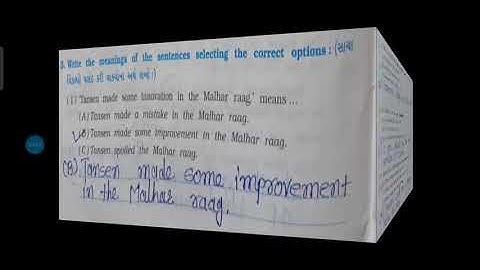 3. Write the meanings of the sentences selecting the correct options : (સાચા
વિકલ્પો પસંદ કરી વાક્યના અર્થ લખો :)
(1) 'Tansen made some innovation in the Malhar raag.' means ...
(A) Tansen made a mistake in the Malhar raag.
(B) Tansen made some improvement in the Malhar raag.
(C) Tansen spoiled the Malhar raag.
(B) Tansen made some improvement
in the Malhar raag.